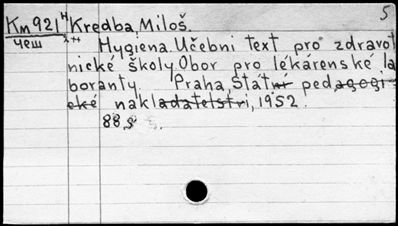 5
Км 921 Kredba, Miloš.
чеш Hygiena. Učební text pro zdravot
nické školy. Obor pro lékárenské la
boranty. Praha, Státní pedagogi
cké nakladatelství, 1952.
88 s.